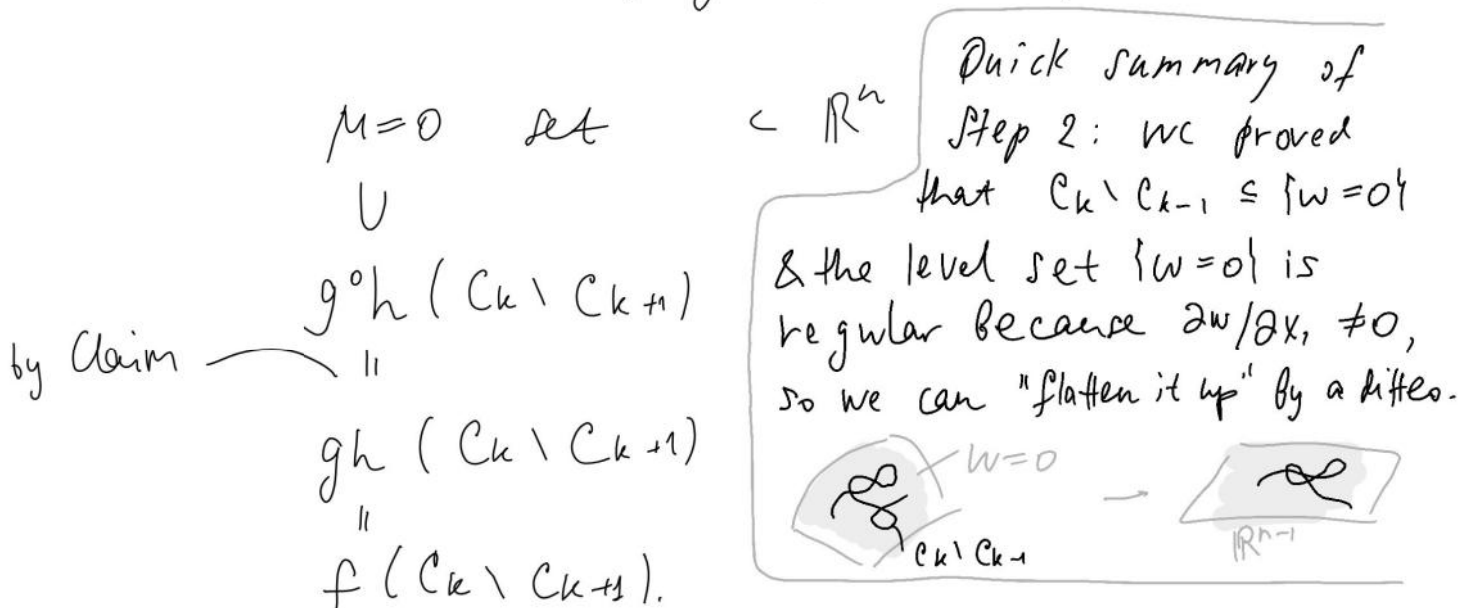 μ=0 set ⊂ ℝⁿ
∪
g°h ( Ck \ Ck+1)
by Claim
||
gh ( Ck \ Ck+1)
||
f ( Ck \ Ck+1).
Quick summary of
Step 2: we proved
that Ck \ Ck-1 ⊆ {w=0}
& the level set {w=0} is
regular because ∂w/∂x₁ ≠0,
so we can "flatten it up" by a diffeo.
w=0
Ck \ Ck-1
ℝⁿ⁻¹